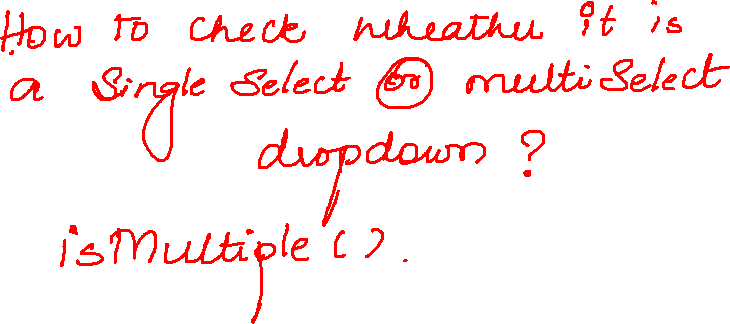 How to check wheather it is
a Single Select or multi Select
dropdown ?
isMultiple ().